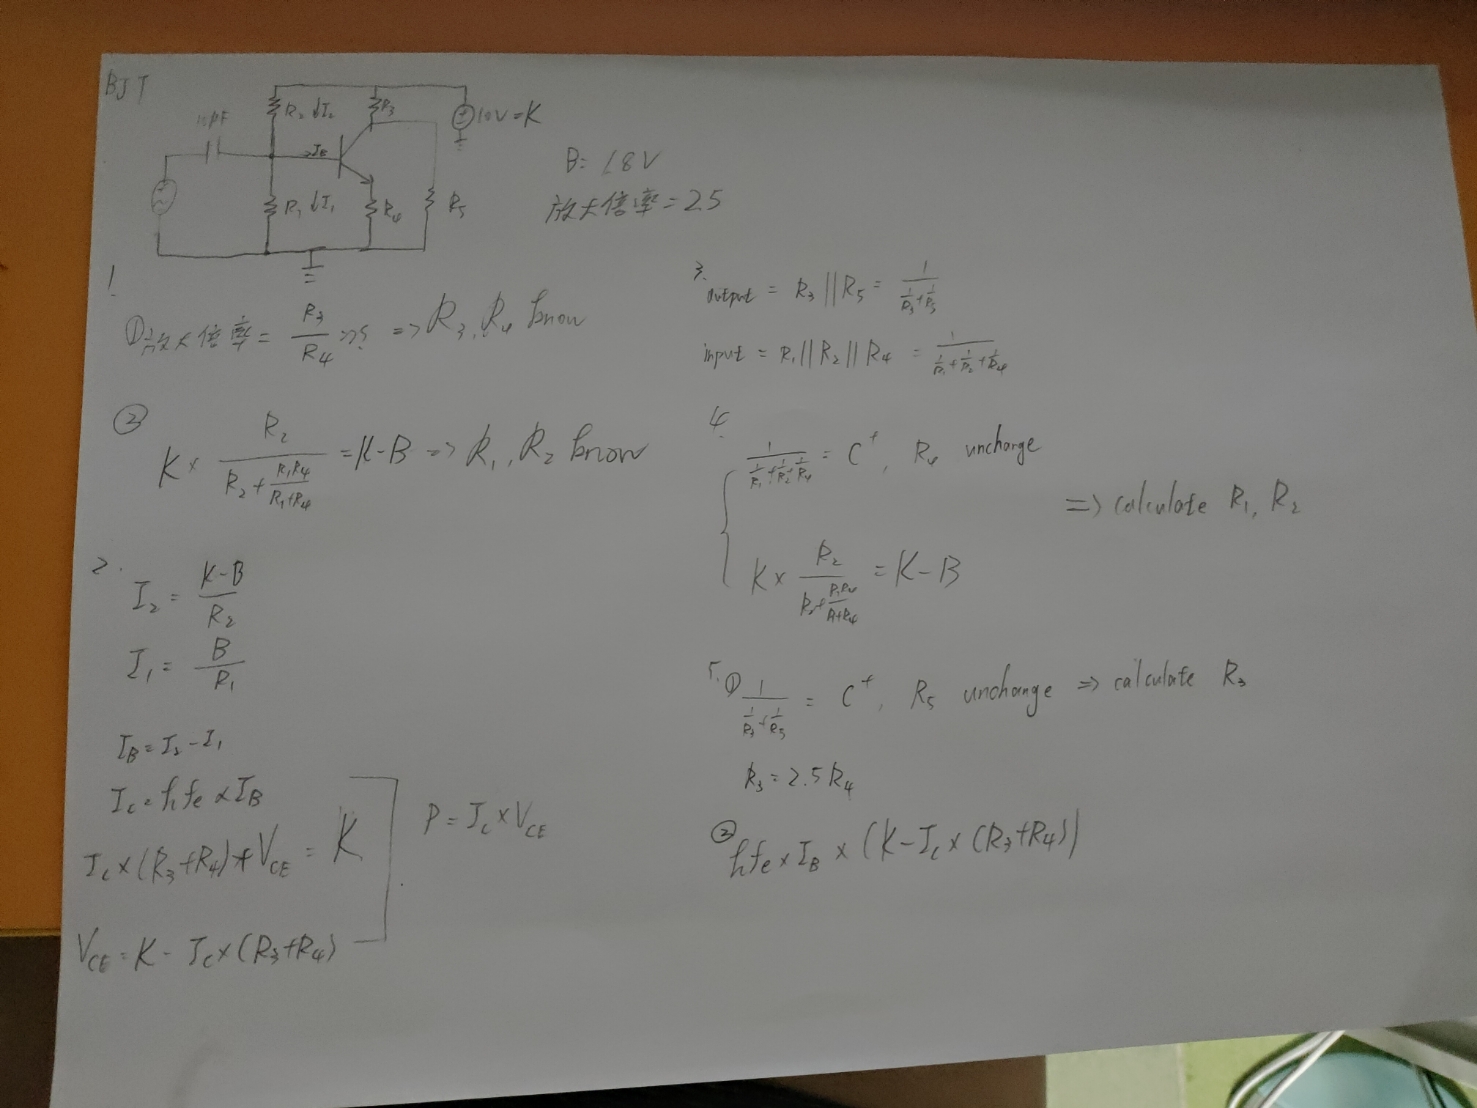 BJT
R₂ ↓I₂
R₃
10V=K
I_B
R₁ ↓I₁
R₄
R₅
B= 1.8V
放大倍率=2.5
1.
①放大倍率= R₃/R₄ => R₃, R₄ know
② K× R₂/(R₂+(R₁R₄)/(R₁+R₄)) =K-B => R₁, R₂ know
2.
I₂= (K-B)/R₂
I₁= B/R₁
I_B=I₂-I₁
I_C=hfe×I_B
I_C×(R₃+R₄)+V_CE=K
V_CE=K-I_C×(R₃+R₄)
P=I_C×V_CE
3.
output = R₃||R₅= 1/(1/R₃+1/R₅)
input = R₁||R₂||R₄ = 1/(1/R₁+1/R₂+1/R₄)
4.
1/(1/R₁+1/R₂+1/R₄) = C⁺, R₄ uncharge
K× R₂/(R₂+(R₁R₄)/(R₁+R₄)) =K-B
=> calculate R₁, R₂
5.① 1/(1/R₃+1/R₅) = C⁺, R₅ unchange => calculate R₃
R₃=2.5R₄
② hfe×I_B×(K-I_C×(R₃+R₄))